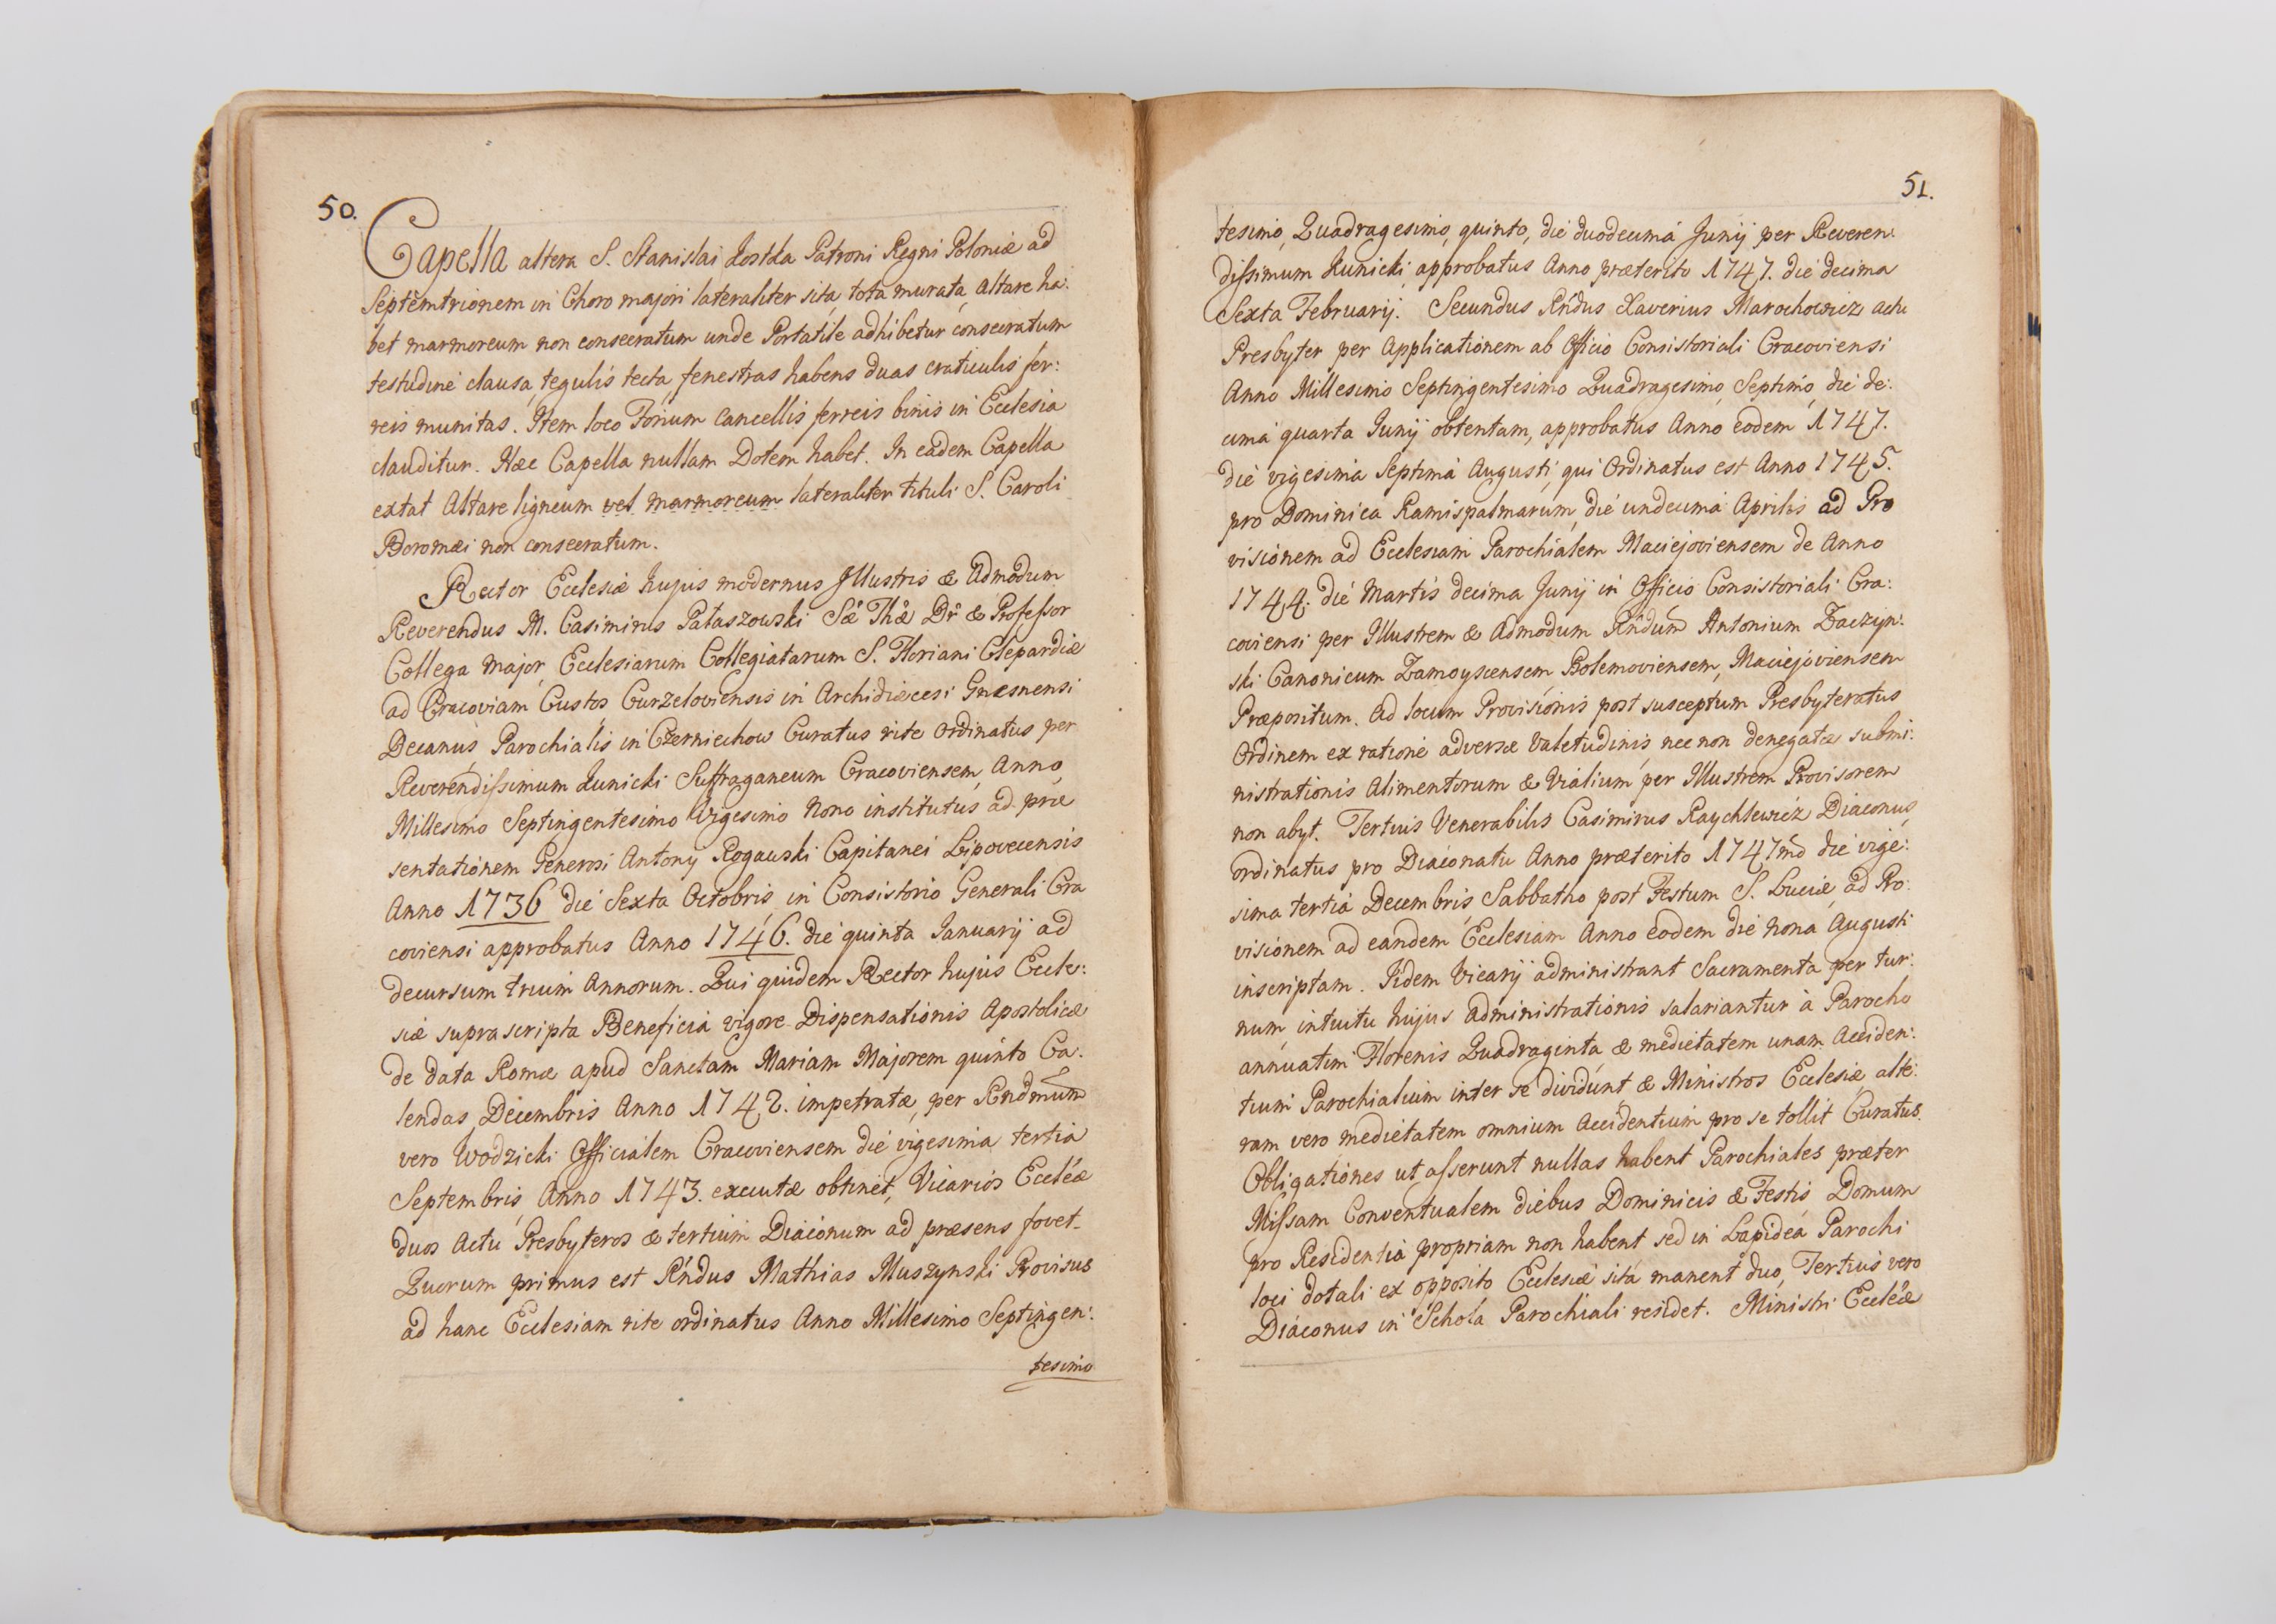 50.
Capella altera S. Stanislai Kostka Patroni Regni Poloniæ ad
Septemtrionem in Choro majori lateraliter sita, tota murata, Altare ha:
bet marmoreum non consecratum unde Portatile adhibetur consecratum
testudine clausa, tegulis tecta, fenestras habens duas craticulis fer:
reis munitas. Item loco Forium Cancellis ferreis binis in Ecclesia
clauditur. Hæc Capella nullam Dotem habet. In eadem Capella
extat Altare ligneum vel marmoreum lateraliter tituli S. Caroli
Boromæi non consecratum.
Rector Ecclesiæ hujus modernus Illustris & Admodum
Reverendus M. Casimirus Pałaszowski Sæ Thæ Dr & Professor
Collega Major, Ecclesiarum Collegiatarum S. Floriani Clepardiæ
ad Cracoviam Custos Curzeloviensis in Archidiæcesi Gnesnensi
Decanus, Parochialis in Czerniechow Curatus rite Ordinatus per
Reverendissimum Kunicki Suffraganeum Cracoviensem, Anno
Millesimo Septingentesimo Vigesimo Nono institutus ad præ
sentationem Generosi Antonij Rogawski Capitanei Lipovecensis
Anno 1736 die Sexta Octobris in Consistorio Generali Cra
coviensi approbatus Anno 1746. die quinta Januarij ad
decursum trium Annorum. Qui quidem Rector hujus Eccle:
siæ suprascripta Beneficia vigore Dispensationis Apostolicæ
de data Romæ apud Sanctam Mariam Majorem quinto Ca.
lendas Decembris Anno 1742. impetratæ, per Rndmum
vero Wodzicki Officialem Cracoviensem die vigesima tertia
Septembris, Anno 1743. executæ obtinet, Vicarios Eccleæ
duos Actu Presbyteros & tertium Diaconum ad præsens fovet.
Quorum primus est Rndus Mathias Muszynski Provisus
ad hanc Ecclesiam rite ordinatus Anno Millesimo Septingen:
tesimo
51.
tesimo, Quadragesimo, quinto, die duodecima Junij per Reveren:
dissimum Kunicki, approbatus Anno præterito 1747. die decima
Sexta Februarij. Secundus Rndus Xaverius Marochowicz actu
Presbyter per Applicationem ab Officio Consistoriali Cracoviensi
Anno Millesimo Septingentesimo Quadragesimo, Septimo, die de:
cima quarta Junij obtentam, approbatus Anno eodem 1747.
die vigesima Septima Augusti, qui Ordinatus est Anno 1745.
pro Dominica Ramispalmarum, die undecima Aprilis ad Pro
visionem ad Ecclesiam Parochialem Maciejoviensem de Anno
1744. die Martis decima Junij in Officio Consistoriali Cra:
coviensi per Illustrem & Admodum Rndum Antonium Zaczyn:
ski Canonicum Zamoyscensem Bolemoviensem, Maciejoviensem
Præpositum. Ad locum Provisionis post susceptum Presbyteratus
Ordinem ex ratione adversæ Valetudinis, nec non denegatæ submi:
nistrationis Alimentorum & Vialium per Illustrem Provisorem
non abyt. Tertius Venerabilis Casimirus Raychlewicz Diaconus,
ordinatus pro Diaconatu Anno præterito 1747mo die vige:
sima tertia Decembris, Sabbatho post Festum S. Luciæ, ad Pro:
visionem ad eandem Ecclesiam Anno eodem die Nona Augusti
inscriptam. Iidem Vicarij administrant Sacramenta per tur:
num, intuitu hujus Administrationis salariantur à Parocho
annuatim Florenis Quadraginta & medietatem unam Acciden:
tium Parochialium inter se dividunt & Ministros Ecclesiæ, alte:
ram vero medietatem omnium Accidentium pro se tollit Curatus.
Obligationes ut asserunt nullas habent Parochiales præter
Missam Conventualem diebus Dominicis & Festis, Domum
pro Residentia propriam non habent sed in Lapidea Parochi
loci dotali ex opposito Ecclesiæ sita manent duo, Tertius vero
Diaconus in Schola Parochiali residet. Ministri Eccleæ